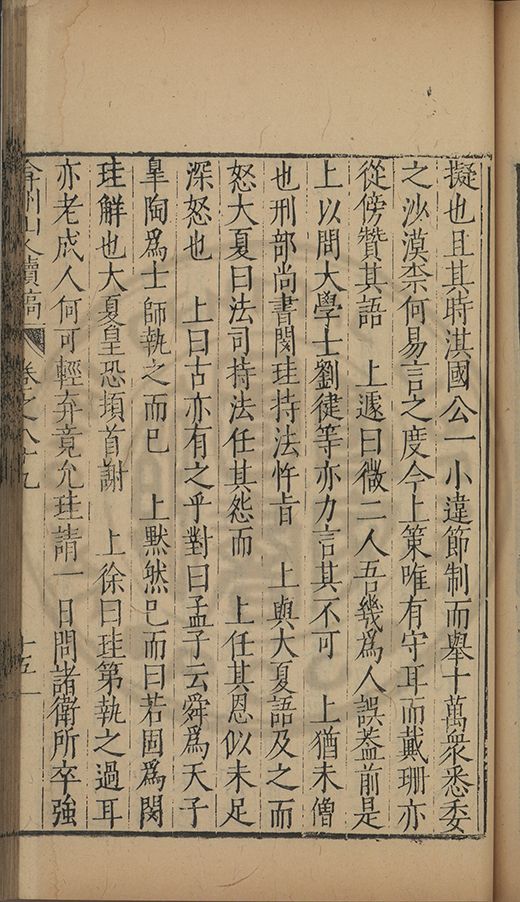 擬也且其時淇國公一小違節制而舉十萬衆悉委
之沙漠柰何易言之度今上策唯有守耳而戴珊亦
從傍贊其語　上遽曰微二人吾幾爲人誤蓋前是
上以問大學士劉健等亦力言其不可　上猶未僧
也刑部尚書閔珪持法忤旨　上與大夏語及之而
怒大夏曰法司持法任其怨而　上任其恩似未足
深怒也　上曰古亦有之乎對曰孟子云舜爲天子
皐陶爲士師執之而已　上默然已而曰若固爲閔
珪解也大夏皇恐頓首謝　上徐曰珪第執之過耳
亦老成人何可輕弃竟允珪請一日問諸衛所卒強
弇州山人續稿　卷之八十九　十五